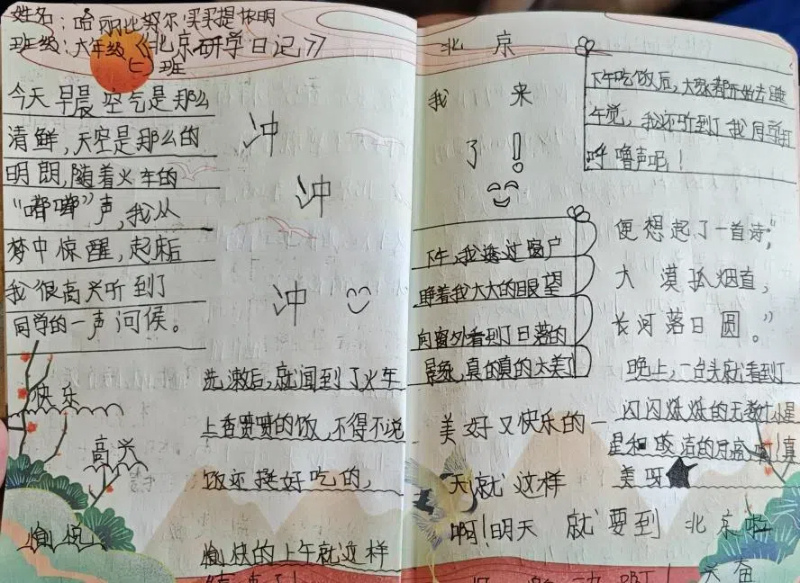 姓名：哈丽比努尔·买买提依明
班级：六年级（七）班
《北京研学日记》
今天早晨空气是那么
清鲜，天空是那么的
明朗，随着火车的
“嘟嘟”声，我从
梦中惊醒，起床后
我很高兴听到了
同学的一声问候。
冲
冲
冲
快乐
高兴
愉悦
洗漱后，就闻到了火车
上香喷喷的饭，不得不说
饭还挺好吃的，
愉快的上午就这样
北京
我来
了！
下午吃饭后，大家都开始去睡
午觉，我还听到了我同学打
呼噜声呢！
下午，我透过窗户
睁着我大大的眼望
向窗外看到了日落的
景象，真的真的太美了
便想起了一首诗，“
大漠孤烟直，
长河落日圆。”
晚上，一台头就看到了
闪闪烁烁的无数小星
星和皎洁的月亮，真
美呀
美好又快乐的一
天就这样
啊！明天就要到北京啦